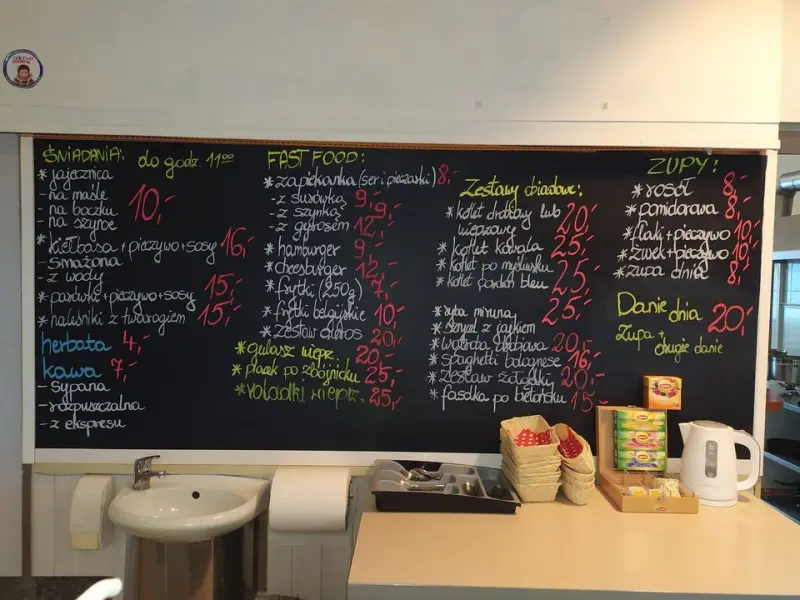 ŚNIADANIA: do godz. 11⁰⁰
* jajecznica
- na maśle 10,-
- na boczku
- na szynce
* kiełbasa + pieczywo + sosy 16,-
- smażona
- z wody
* parówki + pieczywo + sosy 15,-
* naleśniki z twarogiem 15,-
herbata 4,-
kawa 7,-
- sypana
- rozpuszczalna
- z ekspresu
FAST FOOD:
* zapiekanka (ser i pieczarki) 8,-
- z surówką 9,-
- z szynką 9,-
- z gyrosem 12,-
* hamburger 9,-
* cheesburger 12,-
* frytki (250g) 7,-
* frytki belgijskie 10,-
* zestaw gyros 20,-
* gulasz wieprz. 20,-
* placek po zbójnicku 25,-
* roladki wieprz. 25,-
Zestawy obiadowe:
* kotlet drobiowy lub 20,-
wieprzowy
* kotlet kowala 25,-
* kotlet po myśliwsku 25,-
* kotlet gordon bleu
25,-
* ryba miruna
* stryzel z jajkiem
* wątroba drobiowa 20,-
* spaghetti bolognese 16,-
* zestaw 20,-
* fasolka po bretońsku 15,-
ZUPY:
* rosół 8,-
* pomidorowa 8,-
* flaki + pieczywo 10,-
* żurek + pieczywo 10,-
* zupa dnia 8,-
Danie dnia 20,-
zupa +
drugie danie
Lipton